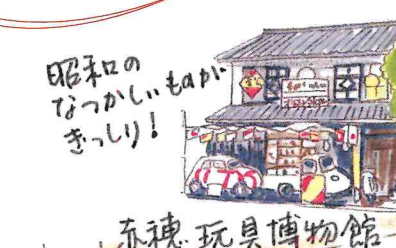 昭和の
なつかしいものが
ぎっしり!
赤穂玩具博物館